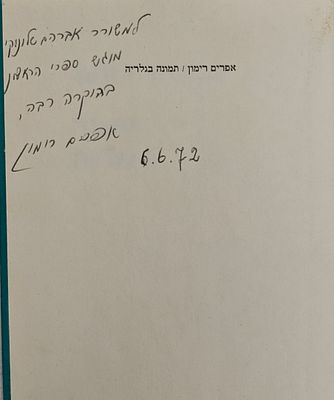 למשורר אברהם שלונסקי
מוגש ספרי הראשון
בהוקרה רבה,
אפרים רימון
6.6.72
אפרים רימון / תמונה בגלריה